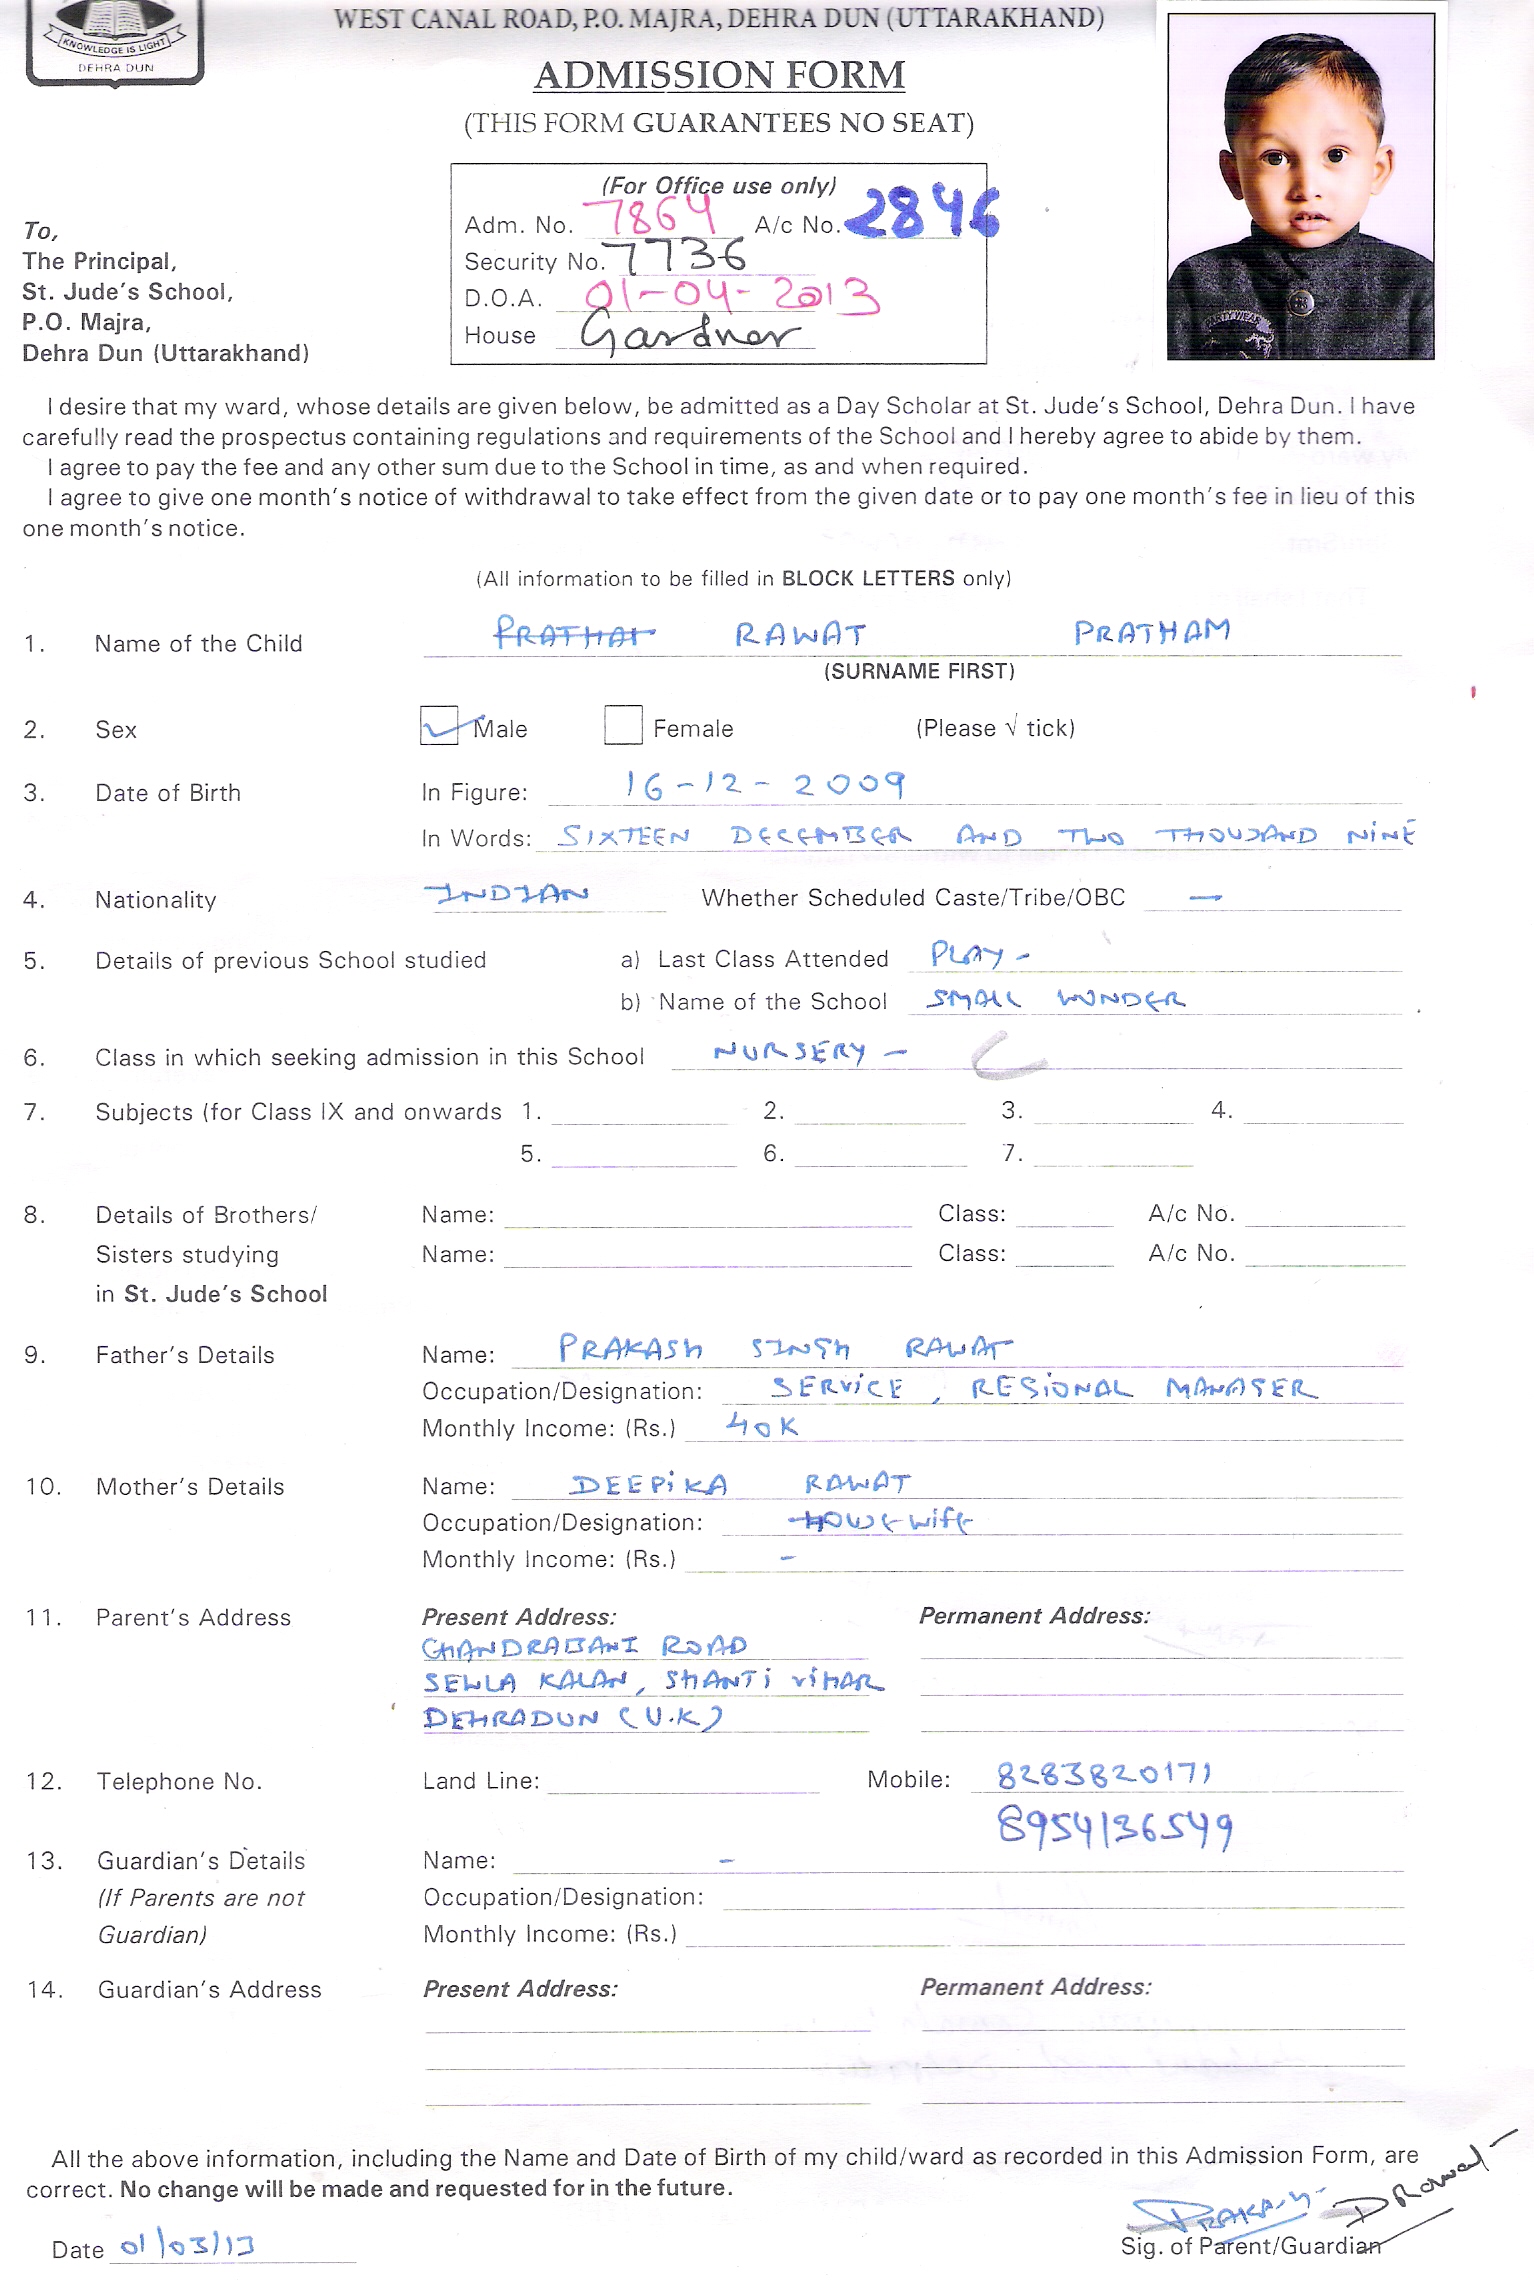 KNOWLEDGE IS LIGHT
DEHRA DUN
WEST CANAL ROAD, P.O. MAJRA, DEHRA DUN (UTTARAKHAND)
ADMISSION FORM
(THIS FORM GUARANTEES NO SEAT)
(For Office use only)
Adm. No. 7864 A/c No. 2846
Security No. 7736
D.O.A. 01-04-2013
House Gardner
To,
The Principal,
St. Jude's School,
P.O. Majra,
Dehra Dun (Uttarakhand)
I desire that my ward, whose details are given below, be admitted as a Day Scholar at St. Jude's School, Dehra Dun. I have
carefully read the prospectus containing regulations and requirements of the School and I hereby agree to abide by them.
I agree to pay the fee and any other sum due to the School in time, as and when required.
I agree to give one month's notice of withdrawal to take effect from the given date or to pay one month's fee in lieu of this
one month's notice.
(All information to be filled in BLOCK LETTERS only)
1. Name of the Child RAWAT PRATHAM
(SURNAME FIRST)
2. Sex Male Female (Please √ tick)
3. Date of Birth In Figure: 16-12-2009
In Words: SIXTEEN DECEMBER AND TWO THOUSAND NINE
4. Nationality INDIAN Whether Scheduled Caste/Tribe/OBC —
5. Details of previous School studied a) Last Class Attended PLAY -
b) Name of the School SMALL WONDER
6. Class in which seeking admission in this School NURSERY - C
7. Subjects (for Class IX and onwards 1. 2. 3. 4.
5. 6. 7.
8. Details of Brothers/ Name: Class: A/c No.
Sisters studying Name: Class: A/c No.
in St. Jude's School
9. Father's Details Name: PRAKASH SINGH RAWAT
Occupation/Designation: SERVICE, REGIONAL MANAGER
Monthly Income: (Rs.) 40K
10. Mother's Details Name: DEEPIKA RAWAT
Occupation/Designation: HOUSEWIFE
Monthly Income: (Rs.) -
11. Parent's Address Present Address: Permanent Address:
CHANDRABANI ROAD
SEWLA KALAN, SHANTI VIHAR
DEHRADUN (U.K)
12. Telephone No. Land Line: Mobile: 8283820171
8954136549
13. Guardian's Details Name: -
(If Parents are not Occupation/Designation:
Guardian) Monthly Income: (Rs.)
14. Guardian's Address Present Address: Permanent Address:
All the above information, including the Name and Date of Birth of my child/ward as recorded in this Admission Form, are
correct. No change will be made and requested for in the future.
DRawat
Date 01/03/13 Sig. of Parent/Guardian